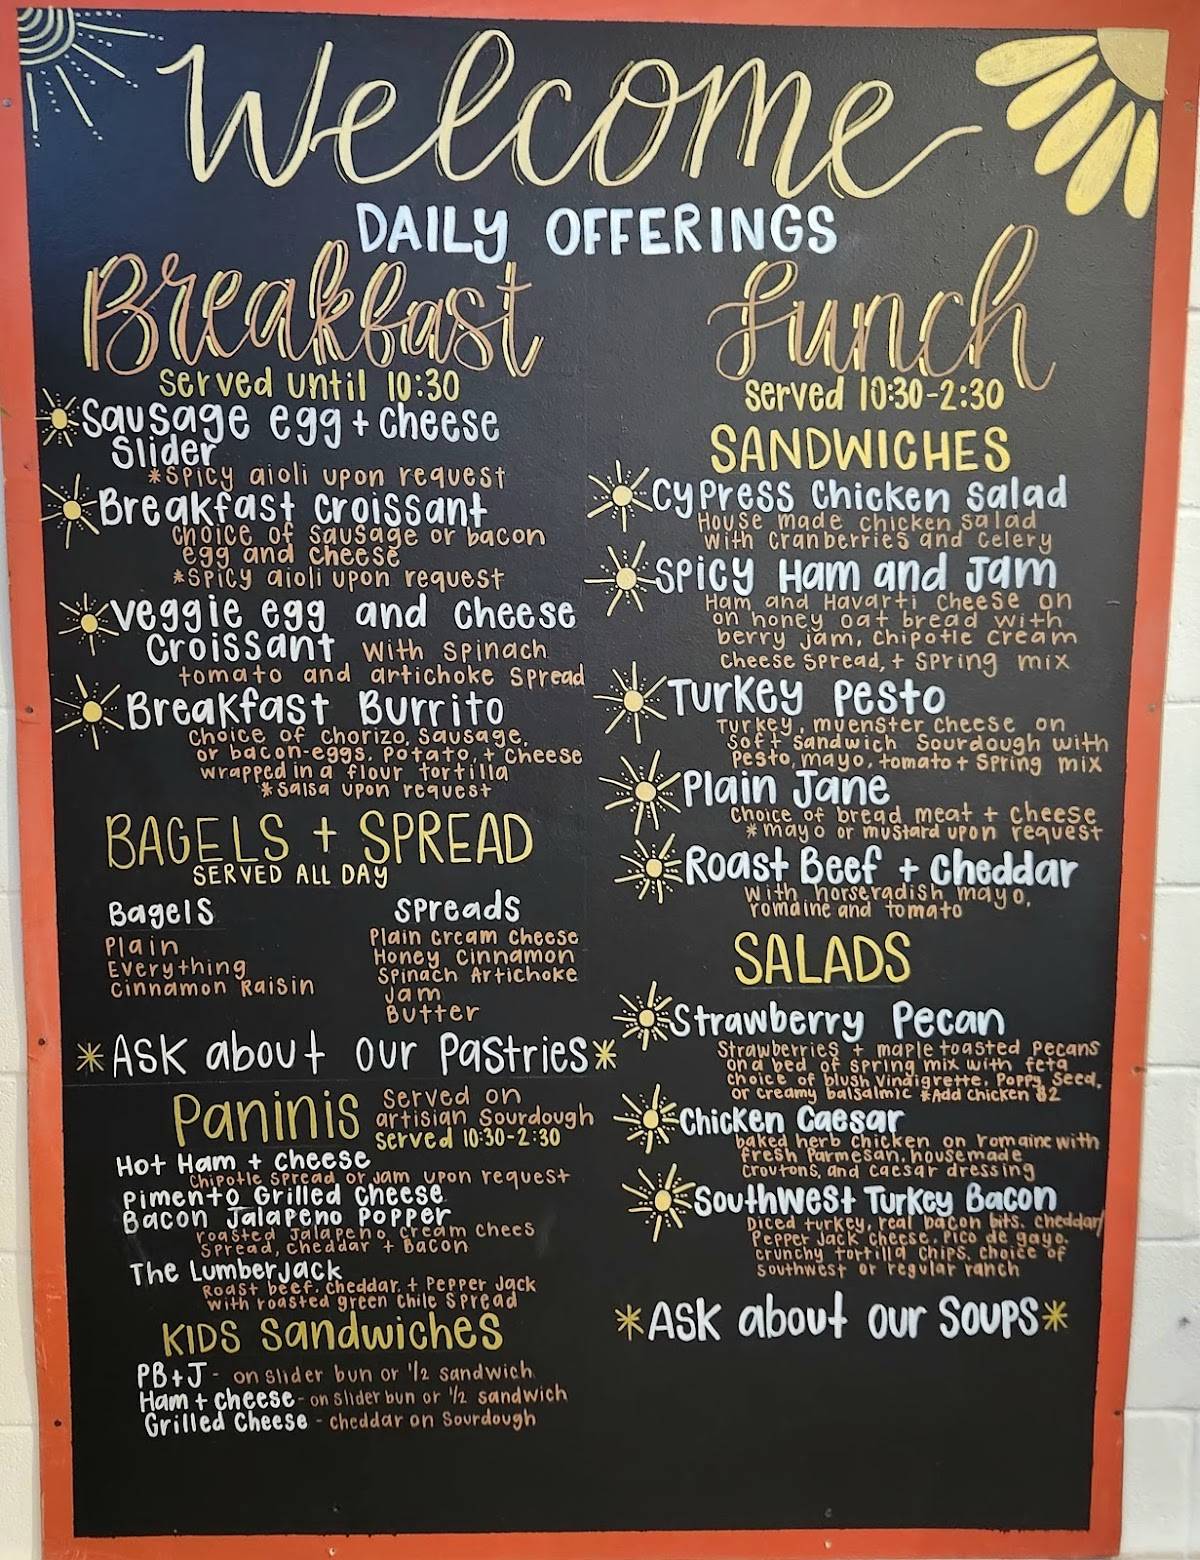 Welcome
DAILY OFFERINGS
Breakfast
served until 10:30
Sausage egg + cheese
Slider
*spicy aioli upon request
Breakfast croissant
choice of sausage or bacon
egg and cheese
*spicy aioli upon request
Veggie egg and cheese
Croissant with spinach
tomato and artichoke spread
Breakfast Burrito
choice of chorizo, sausage,
or bacon-eggs, potato, + cheese
wrapped in a flour tortilla
*salsa upon request
BAGELS + SPREAD
SERVED ALL DAY
Bagels
Plain
Everything
Cinnamon Raisin
Spreads
Plain cream cheese
Honey cinnamon
Spinach Artichoke
Jam
Butter
*Ask about our pastries*
Paninis served on
artisian sourdough
served 10:30-2:30
Hot Ham + cheese
Chipotle spread or jam upon request
Pimento Grilled Cheese
Bacon Jalapeno Popper
roasted jalapeno cream chees
spread, cheddar + bacon
The Lumberjack
Roast beef, cheddar, + pepper jack
with roasted green chile spread
KIDS Sandwiches
PB+J - on slider bun or 1/2 sandwich
Ham + cheese - on slider bun or 1/2 sandwich
Grilled Cheese - cheddar on sourdough
Lunch
served 10:30-2:30
SANDWICHES
Cypress chicken salad
House made chicken salad
with cranberries and celery
Spicy Ham and Jam
Ham and Havarti cheese on
on honey oat bread with
berry jam, chipotle cream
cheese spread, + spring mix
Turkey pesto
Turkey, muenster cheese on
soft sandwich sourdough with
pesto, mayo, tomato + spring mix
Plain Jane
Choice of bread meat + cheese
*mayo or mustard upon request
Roast Beef + cheddar
with horseradish mayo,
romaine and tomato
SALADS
Strawberry Pecan
Strawberries + maple toasted pecans
on a bed of spring mix with feta
choice of blush vinaigrette, poppy seed,
or creamy balsalmic *Add chicken $2
Chicken Caesar
baked herb chicken on romaine with
fresh parmesan, housemade
croutons, and caesar dressing
Southwest Turkey Bacon
Diced turkey, real bacon bits, cheddar/
pepper jack cheese, pico de gayo,
crunchy tortilla chips, choice of
southwest or regular ranch
*Ask about our soups*